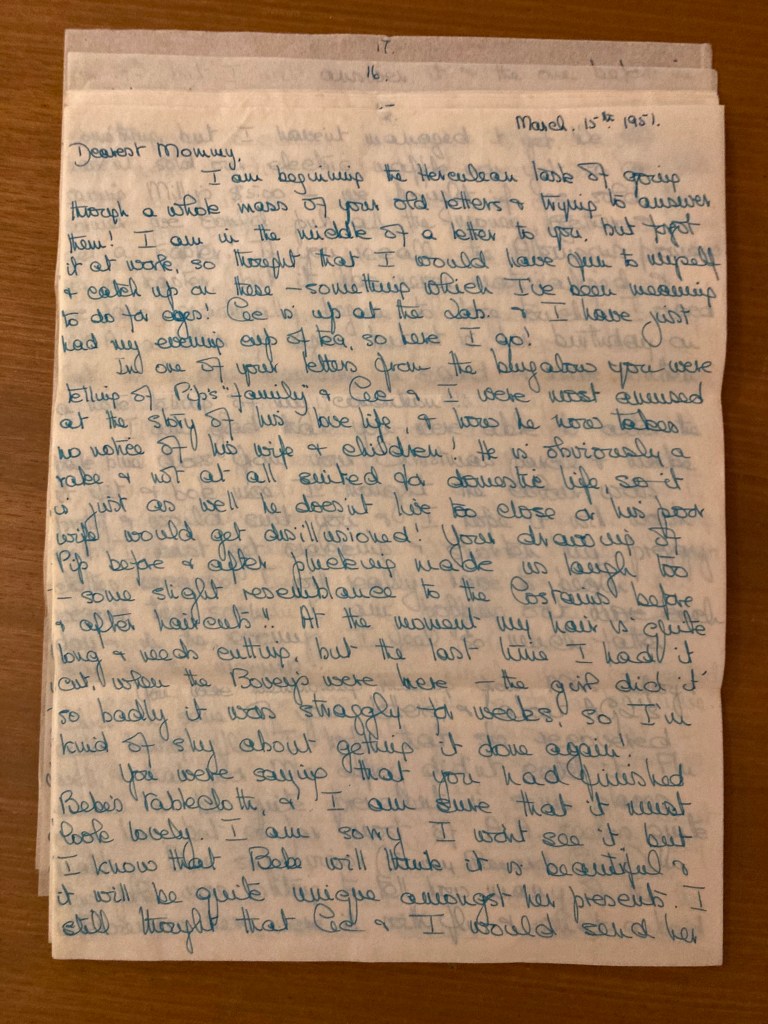 17.
16.
March. 15th 1951.
Dearest Mommy,
I am beginning the Herculean task of going
through a whole mass of your old letters & trying to answer
them! I am in the middle of a letter to you, but forgot
it at work, so thought that I would have fun to myself
& catch up on these – something which I've been meaning
to do for ages! Cec is up at the Lab. & I have just
had my evening cup of tea, so here I go!
In one of your letters from the bungalow you were
telling of Pip's "family" & Cec & I were most amused
at the story of his love life, & how he now takes
no notice of his wife & children! He is obviously a
rake & not at all suited for domestic life, so it
is just as well he doesn't live too close or his poor
wife would get disillusioned! Your drawing of
Pip before & after plucking made us laugh too
– some slight resemblance to the Costains before
& after haircuts!! At the moment my hair is quite
long & needs cutting, but the last time I had it
cut, when the Boveys were here – the girl did it
so badly it was straggly for weeks, so I'm
kind of shy about getting it done again!
You were saying that you had finished
Bebe's tablecloth, & I am sure that it must
look lovely. I am sorry I wont see it but
I know that Bebe will think it is beautiful &
it will be quite unique amongst her presents. I
still thought that Cec & I would send her